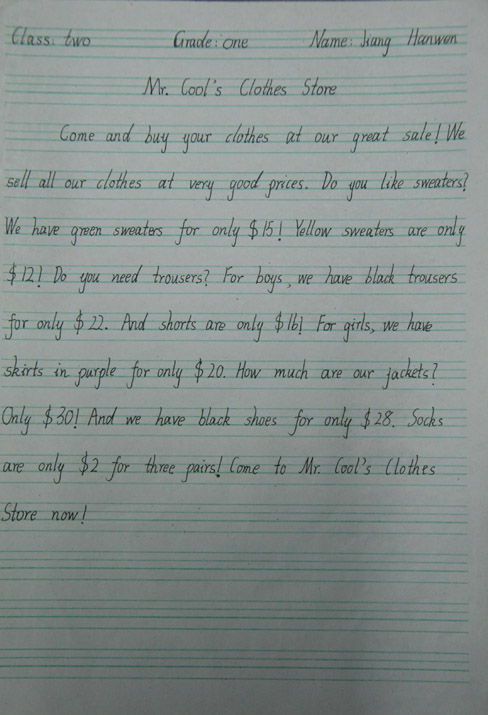 Class: two Grade: one Name: Jiang Hanwen
Mr. Cool's Clothes Store
Come and buy your clothes at our great sale! We
sell all our clothes at very good prices. Do you like sweaters?
We have green sweaters for only $15! Yellow sweaters are only
$12! Do you need trousers? For boys, we have black trousers
for only $22. And shorts are only $16! For girls, we have
skirts in purple for only $20. How much are our jackets?
Only $30! And we have black shoes for only $28. Socks
are only $2 for three pairs! Come to Mr. Cool's Clothes
Store now!